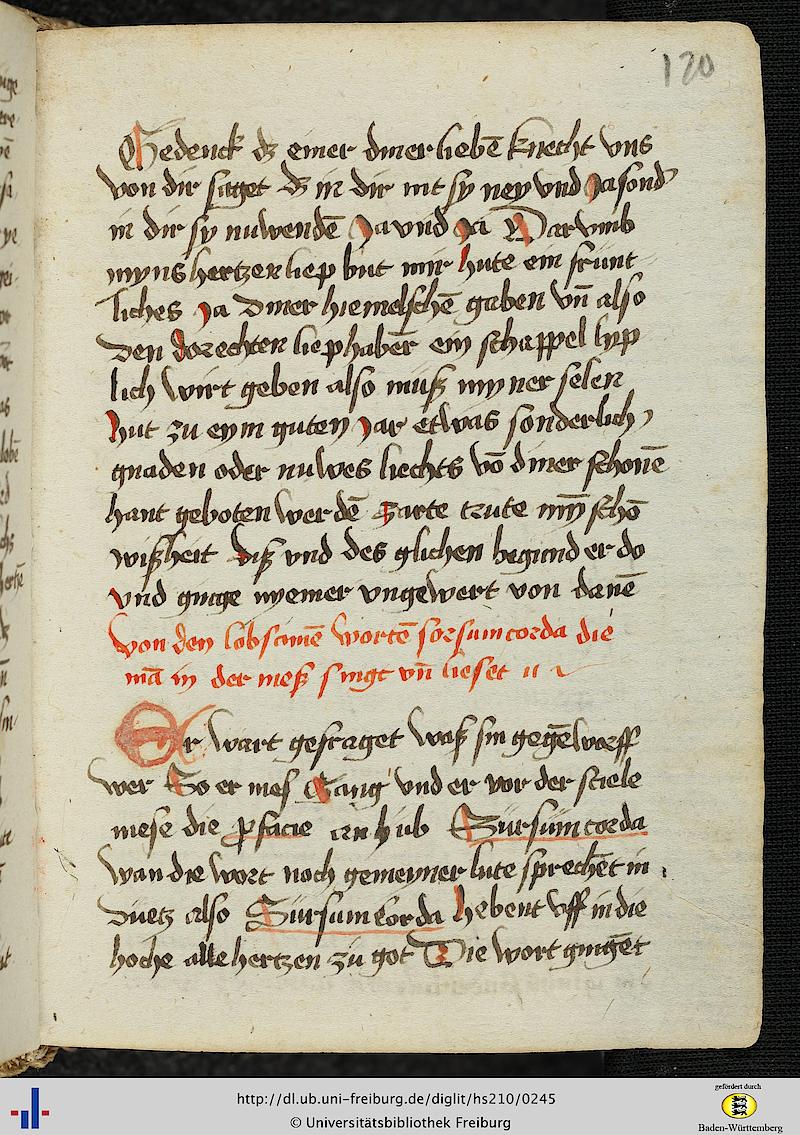 120
Gedenck dz einer diner liebē knecht uns
von dir saget dz in dir nit sy ney vnd ja sond̾
in dir sy nuwendē Ja vnd ja Darvmb
myns hertzen liep büt mir hute ein frünt
liches ja diner hiemelschē gaben vn̄ also
den dorechten liephaber̄ ein schappel lyp
lich wirt geben also muß myner selen
hut zu eym guten jar etwas sonderlich
gnaden oder nuwes liechts vō diner schonē
hant geboten werdē zarte trute mȳ schō
wißheit diß vnd des glichen begund er do
vnd ginge nyemer vngewert von danē
von den lobsamē wortē sorsum corda die
mā in der meß singt vn̄ lieset
Er wart gefraget waß sin gegēworff
wer So er mes Sang vnd er vor der stiele
mese die p̄facie an hub Sursum corda
wan die wort noch gemeyner lute sprechēt in
duetz also Sursum korda hebent vff in die
hoche alle hertzen zu got Die wort gingēt
http://dl.ub.uni-freiburg.de/diglit/hs210/0245
© Universitätsbibliothek Freiburg
gefördert durch
Baden-Württemberg